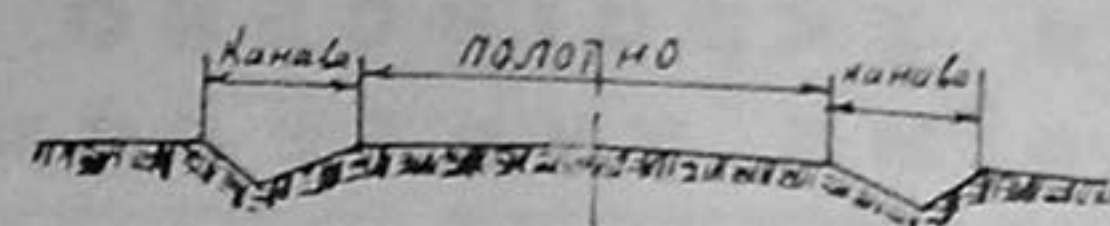 Канава ПОЛОТНО канава